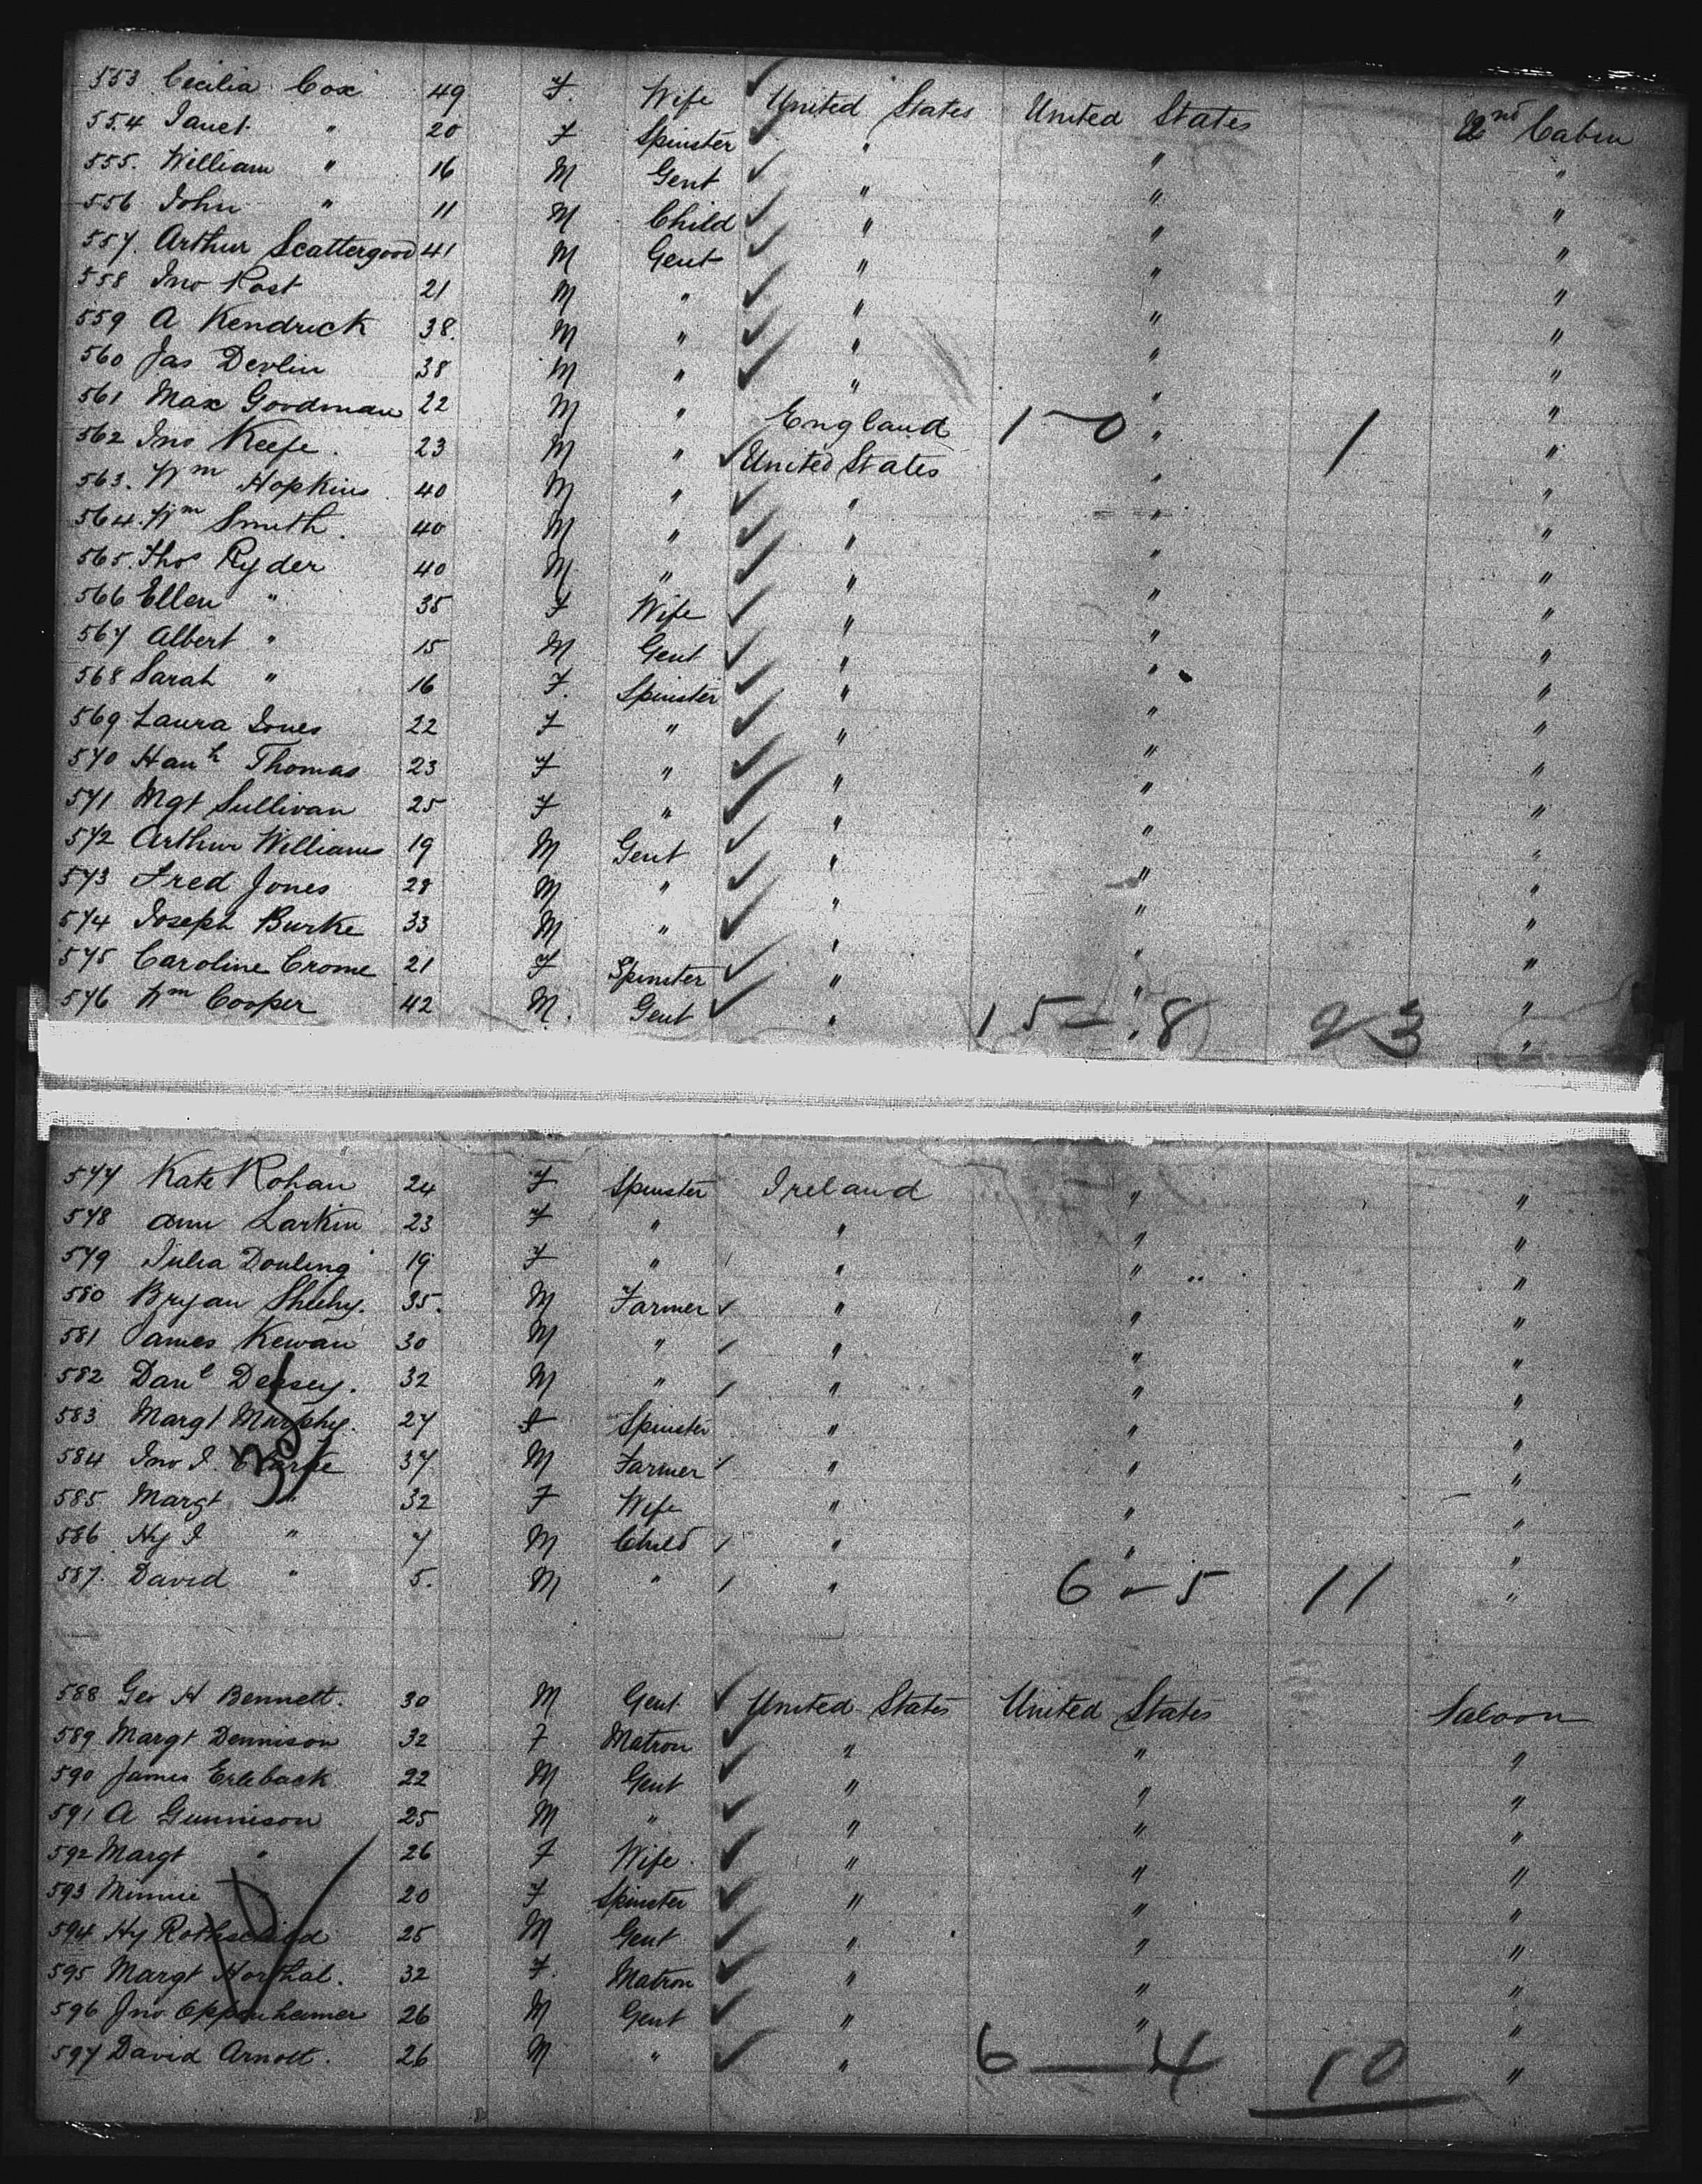 553 Cecilia Cox 49 F. Wife United States United States 2nd Cabin
554 Janet " 20 F Spinster " " "
555. William " 16 M Gent " " "
556 John " 11 M Child " " "
557. Arthur Scattergood 41 M Gent " " "
558 Jno Rost 21 M " " " "
559 A Kendrick 38. M " " " "
560 Jas Devlin 38 M " " " "
561 Max Goodman 22 M " England 1-0 " 1 "
562 Jno Keefe. 23 M " United States " "
563. Wm Hopkins. 40 M " " " "
564. Wm Smith. 40 M " " " "
565. Thos Ryder 40 M " " " "
566 Ellen " 35 F Wife " " "
567 Albert " 15 M Gent " " "
568 Sarah " 16 F. Spinster " " "
569 Laura Jones 22 F " " " "
570 Hanh Thomas 23 F " " " "
571 Mgt Sullivan 25 F " " " "
572 Arthur Williams 19 M Gent " " "
573 Fred Jones 28 M " " " "
574 Joseph Burke 33 M " " " "
575 Caroline Crome 21 F Spinster " " "
576 Wm Cooper 42 M. Gent " 15 - 8 " 23 "
577 Kate Rohan 24 F Spinster Ireland " "
578 Ann Larkin 23 F " " " "
579 Julia Douling 19 F " " " "
580 Bryan Sheehy. 35. M Farmer " " "
581 James Kewan 30 M " " " "
582 Danl Deasey. 32 M " " " "
583 Margt Murphy. 27 F Spinster " " "
584 Jno J. Clarke 37 M Farmer " " "
585 Margt " 32 F Wife " " "
586 Hy J " 7 M Child " " "
587. David " 5. M " " 6 - 5 11 "
588 Geo H Bennett. 30 M Gent United States United States Saloon
589 Margt Dennison 32 F Matron " " "
590 James Erleback 22 M Gent " " "
591 A Gunnison 25 M " " " "
592 Margt " 26 F Wife " " "
593 Minnie " 20 F Spinster " " "
594 Hy Rothschild 25 M Gent " " "
595 Margt Horthal. 32 F. Matron " " "
596 Jno Oppenheimer 26 M Gent " " "
597 David Arnott. 26 M " " 6 - 4 10 "